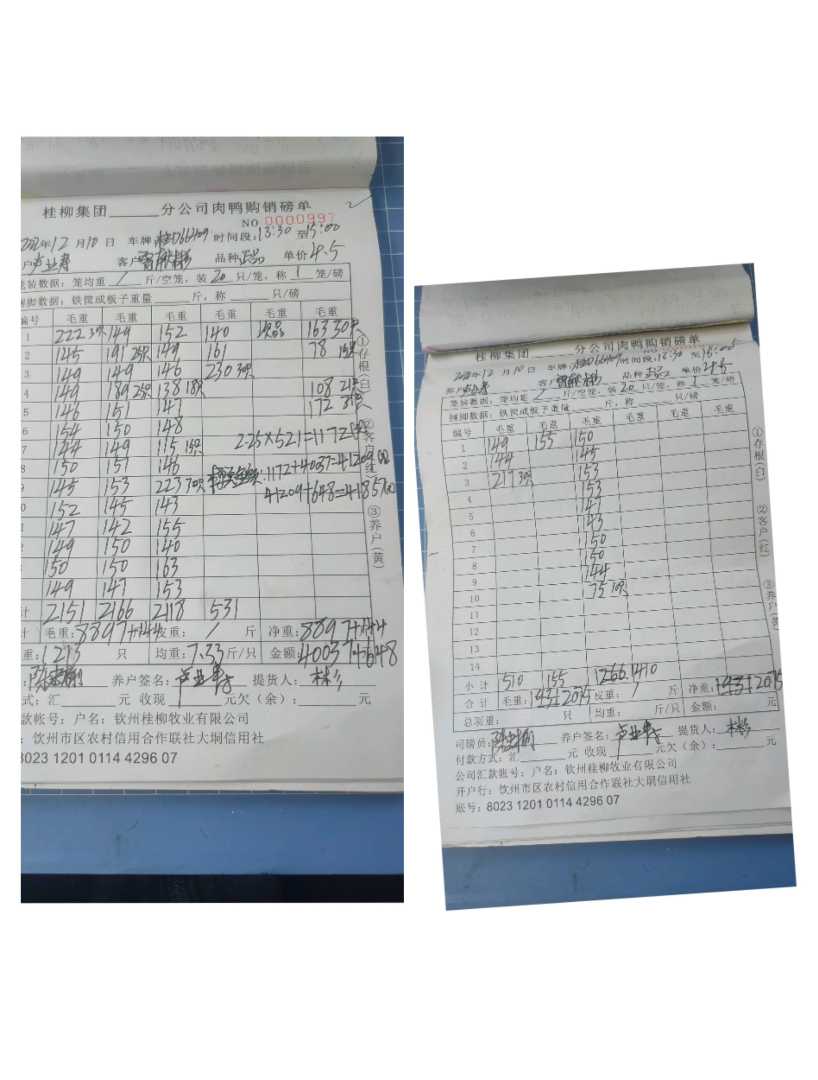 桂柳集团______分公司肉鸭购销磅单
NO 0000997
年12月10日 车牌: 时间段:13:30至15:00
客户 品种正品 单价4.5
笼装数据:笼均重 / 斤/空笼,装20只/笼,称1笼/磅
数据:铁筐或板子重量____斤,称____只/磅
编号 毛重 毛重 毛重 毛重 毛重 毛重
1 222 149 152 140 次品 163 30只
2 145 191 25只 149 161 78
3 149 149 146 230
4 149 189 25只 138 18只 108 21只
5 146 151 147 172
6 154 150 148
7 144 149 115 15只 225×521=1172
8 150 151 146 1172+40037=41209.00
9 145 153 223 41209+648=41857.00
0 152 145 143
147 142 155
149 150 140
150 150 163
149 147 153
计 2151 2166 2118 531
计 毛重:8897+144 皮重: / 斤 净重:8897+144
重:1213 只 均重:7.33斤/只 金额:40037+648
养户签名: 提货人:
式:汇______元 收现______元欠(余):______元
款帐号:户名:钦州桂柳牧业有限公司
:钦州市区农村信用合作联社大垌信用社
8023 1201 0114 4296 07
①存根(白)
②客户(红)
③养户(黄)
桂柳集团______分公司肉鸭购销磅单
年12月10日 车牌: 时间段:13:30至15:00
客户 品种正品 单价4.5
笼装数据:笼均重 / 斤/空笼,装20只/笼,称1笼/磅
数据:铁筐或板子重量____斤,称____只/磅
编号 毛重 毛重 毛重 毛重 毛重
1 149 155 150
2 144 145
3 217 153
4 153
5 147
6 143
7 150
8 150
9 144
10 75 10只
11
12
13
14
小计 510 155 1266 1410
合计 毛重: 皮重: / 斤 净重:
总羽重: 只 均重: 斤/只 金额: 元
司磅员: 养户签名: 提货人:
付款方式:汇______元 收现______元欠(余):______元
公司汇款账号:户名:钦州桂柳牧业有限公司
开户行:钦州市区农村信用合作联社大垌信用社
账号:8023 1201 0114 4296 07
①存根(白)
②客户(红)
③养户(黄)